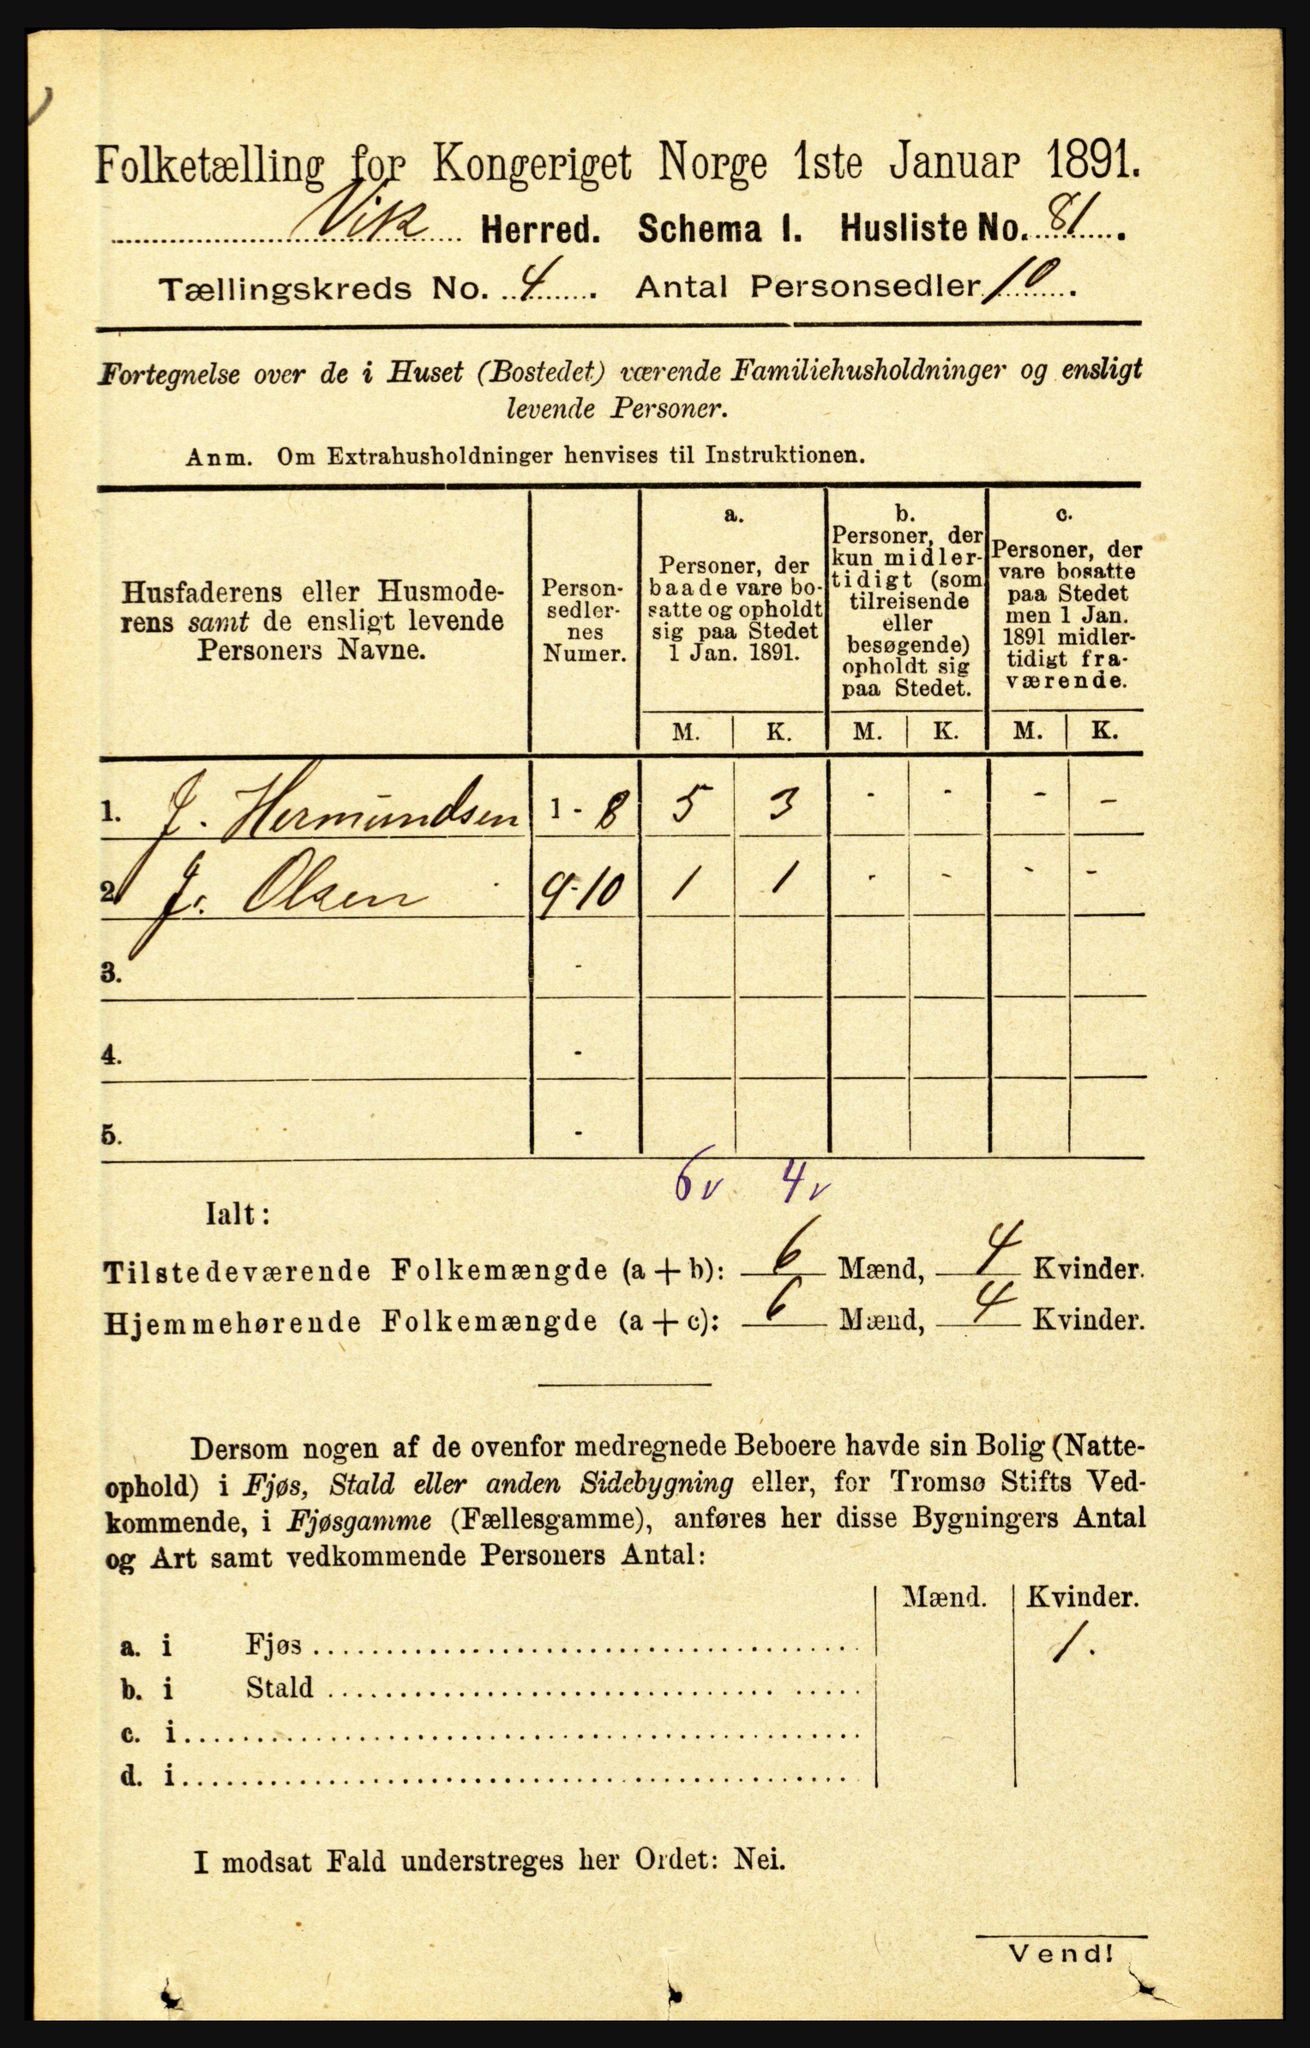 Folketælling for Kongeriget Norge 1ste Januar 1891.
Vik Herred. Schema I. Husliste No. 81.
Tællingskreds No. 4. Antal Personsedler 10.
Fortegnelse over de i Huset (Bostedet) værende Familiehusholdninger og ensligt
levende Personer.
Anm. Om Extrahusholdninger henvises til Instruktionen.
Husfaderens eller Husmode-
rens samt de ensligt levende
Personers Navne.
Person-
sedler-
nes
Numer.
a.
Personer, der
baade vare bo-
satte og opholdt
sig paa Stedet
1 Jan. 1891.
b.
Personer, der
kun midler-
tidigt (som
tilreisende
eller
besøgende)
opholdt sig
paa Stedet.
c.
Personer, der
vare bosatte
paa Stedet
men 1 Jan.
1891 midler-
tidigt fra-
værende.
M. K. M. K. M. K.
1. J. Hermundsen 1 - 8 5 3 - - - -
2. J. Olsen 9-10 1 1 - - - -
3. -
4. -
5. -
6 v 4 v
Ialt:
Tilstedeværende Folkemængde (a + b): 6 Mænd, 4 Kvinder.
Hjemmehørende Folkemængde (a + c): 6 Mænd, 4 Kvinder.
Dersom nogen af de ovenfor medregnede Beboere havde sin Bolig (Natte-
ophold) i Fjøs, Stald eller anden Sidebygning eller, for Tromsø Stifts Ved-
kommende, i Fjøsgamme (Fællesgamme), anføres her disse Bygningers Antal
og Art samt vedkommende Personers Antal:
Mænd. Kvinder.
a. i Fjøs 1.
b. i Stald
c. i
d. i
I modsat Fald understreges her Ordet: Nei.
Vend!